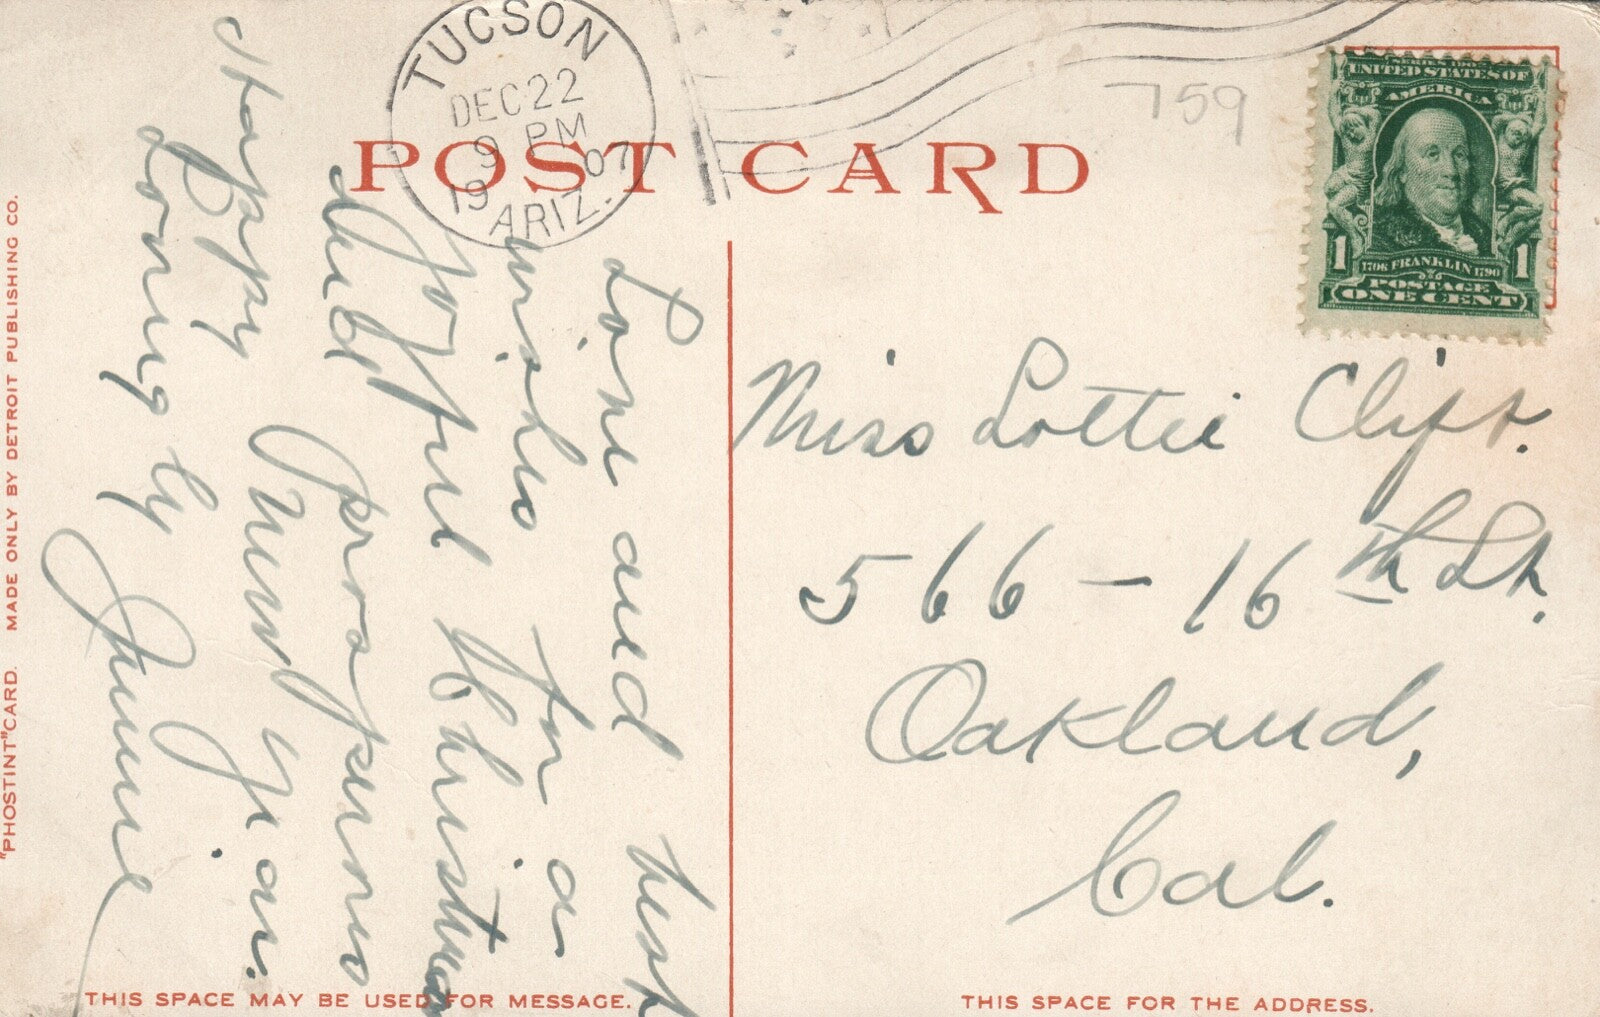 TUCSON
DEC 22
9 PM
1907
ARIZ.
759
POST CARD
SERIES 1902
UNITED STATES OF
AMERICA
1 1
1706 FRANKLIN 1790
POSTAGE
ONE CENT
Love and best
wishes for a
joyful Christmas
and prosperous
Happy New Year.
Lovingly
Jennie
Miss Lottie Clift.
566 - 16th St.
Oakland,
Cal.
"PHOSTINT" CARD. MADE ONLY BY DETROIT PUBLISHING CO.
THIS SPACE MAY BE USED FOR MESSAGE.
THIS SPACE FOR THE ADDRESS.